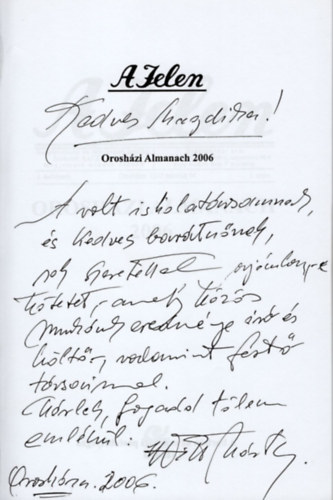 A Jelen
Kedves Magdika!
Orosházi Almanach 2006
A volt iskolatársamnak,
és kedves barátnőnek,
sok szeretettel
kötetet, amely közös
munkánk eredménye író és
költő, valamint festő
társaimmal.
fogadd tőlem
emlékül:
Orosháza. 2006.